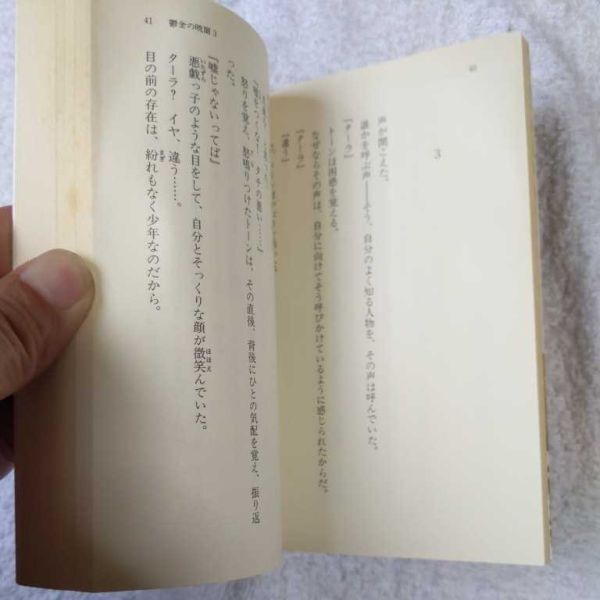 40
3
声が聞こえた。
誰かを呼ぶ声――そう、自分のよく知る人物を、その声は呼んでいた。
『ターラ』
トーンは困惑を覚える。
なぜならその声は、自分に向けてそう呼びかけているように感じられたからだ。
『ターラ』
『違う』
41 鬱金の暁闇3
『嘘をつくな！ タチの悪い……』
怒りを覚え、怒鳴りつけたトーンは、その直後、背後にひとの気配を覚え、振り返
った。
『嘘じゃないってば』
悪戯っ子のような目をして、自分とそっくりな顔が微笑んでいた。
ターラ？ イヤ、違う……。
目の前の存在は、紛れもなく少年なのだから。